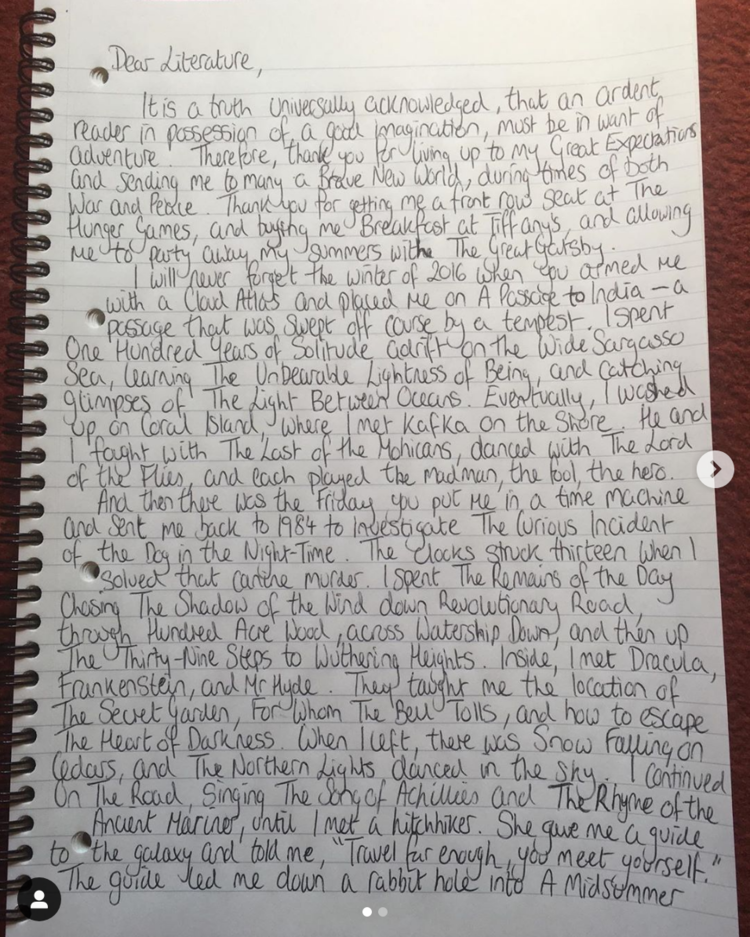 Dear Literature,
It is a truth universally acknowledged, that an ardent
reader in possession of a good imagination, must be in want of
adventure. Therefore, thank you for living up to my Great Expectations
and sending me to many a Brave New World, during times of both
War and Peace. Thank you for getting me a front row seat at The
Hunger Games, and buying me Breakfast at Tiffany's, and allowing
me to party away my summers with The Great Gatsby.
I will never forget the winter of 2016 when you armed me
with a Cloud Atlas and placed me on A Passage to India – a
passage that was swept off course by a tempest. I spent
One Hundred Years of Solitude adrift on the Wide Sargasso
Sea, learning The Unbearable Lightness of Being, and catching
glimpses of The Light Between Oceans. Eventually, I washed
up on Coral Island, where I met Kafka on the Shore. He and
I fought with The Last of the Mohicans, danced with The Lord
of the Flies, and each played the madman, the fool, the hero.
And then there was the Friday you put me in a time machine
and sent me back to 1984 to investigate The Curious Incident
of the Dog in the Night-Time. The clocks struck thirteen when I
solved that canine murder. I spent The Remains of the Day
Chasing The Shadow of the Wind down Revolutionary Road,
through Hundred Acre Wood, across Watership Down, and then up
The Thirty-Nine Steps to Wuthering Heights. Inside, I met Dracula,
Frankenstein, and Mr Hyde. They taught me the location of
The Secret Garden, For Whom The Bell Tolls, and how to escape
The Heart of Darkness. When I left, there was Snow Falling on
Cedars, and The Northern Lights danced in the sky. I continued
On The Road, Singing The Song of Achillies and The Rhyme of the
Ancient Mariner, until I met a hitchhiker. She gave me a guide
to the galaxy and told me, "Travel far enough, you meet yourself."
The guide led me down a rabbit hole into A Midsummer